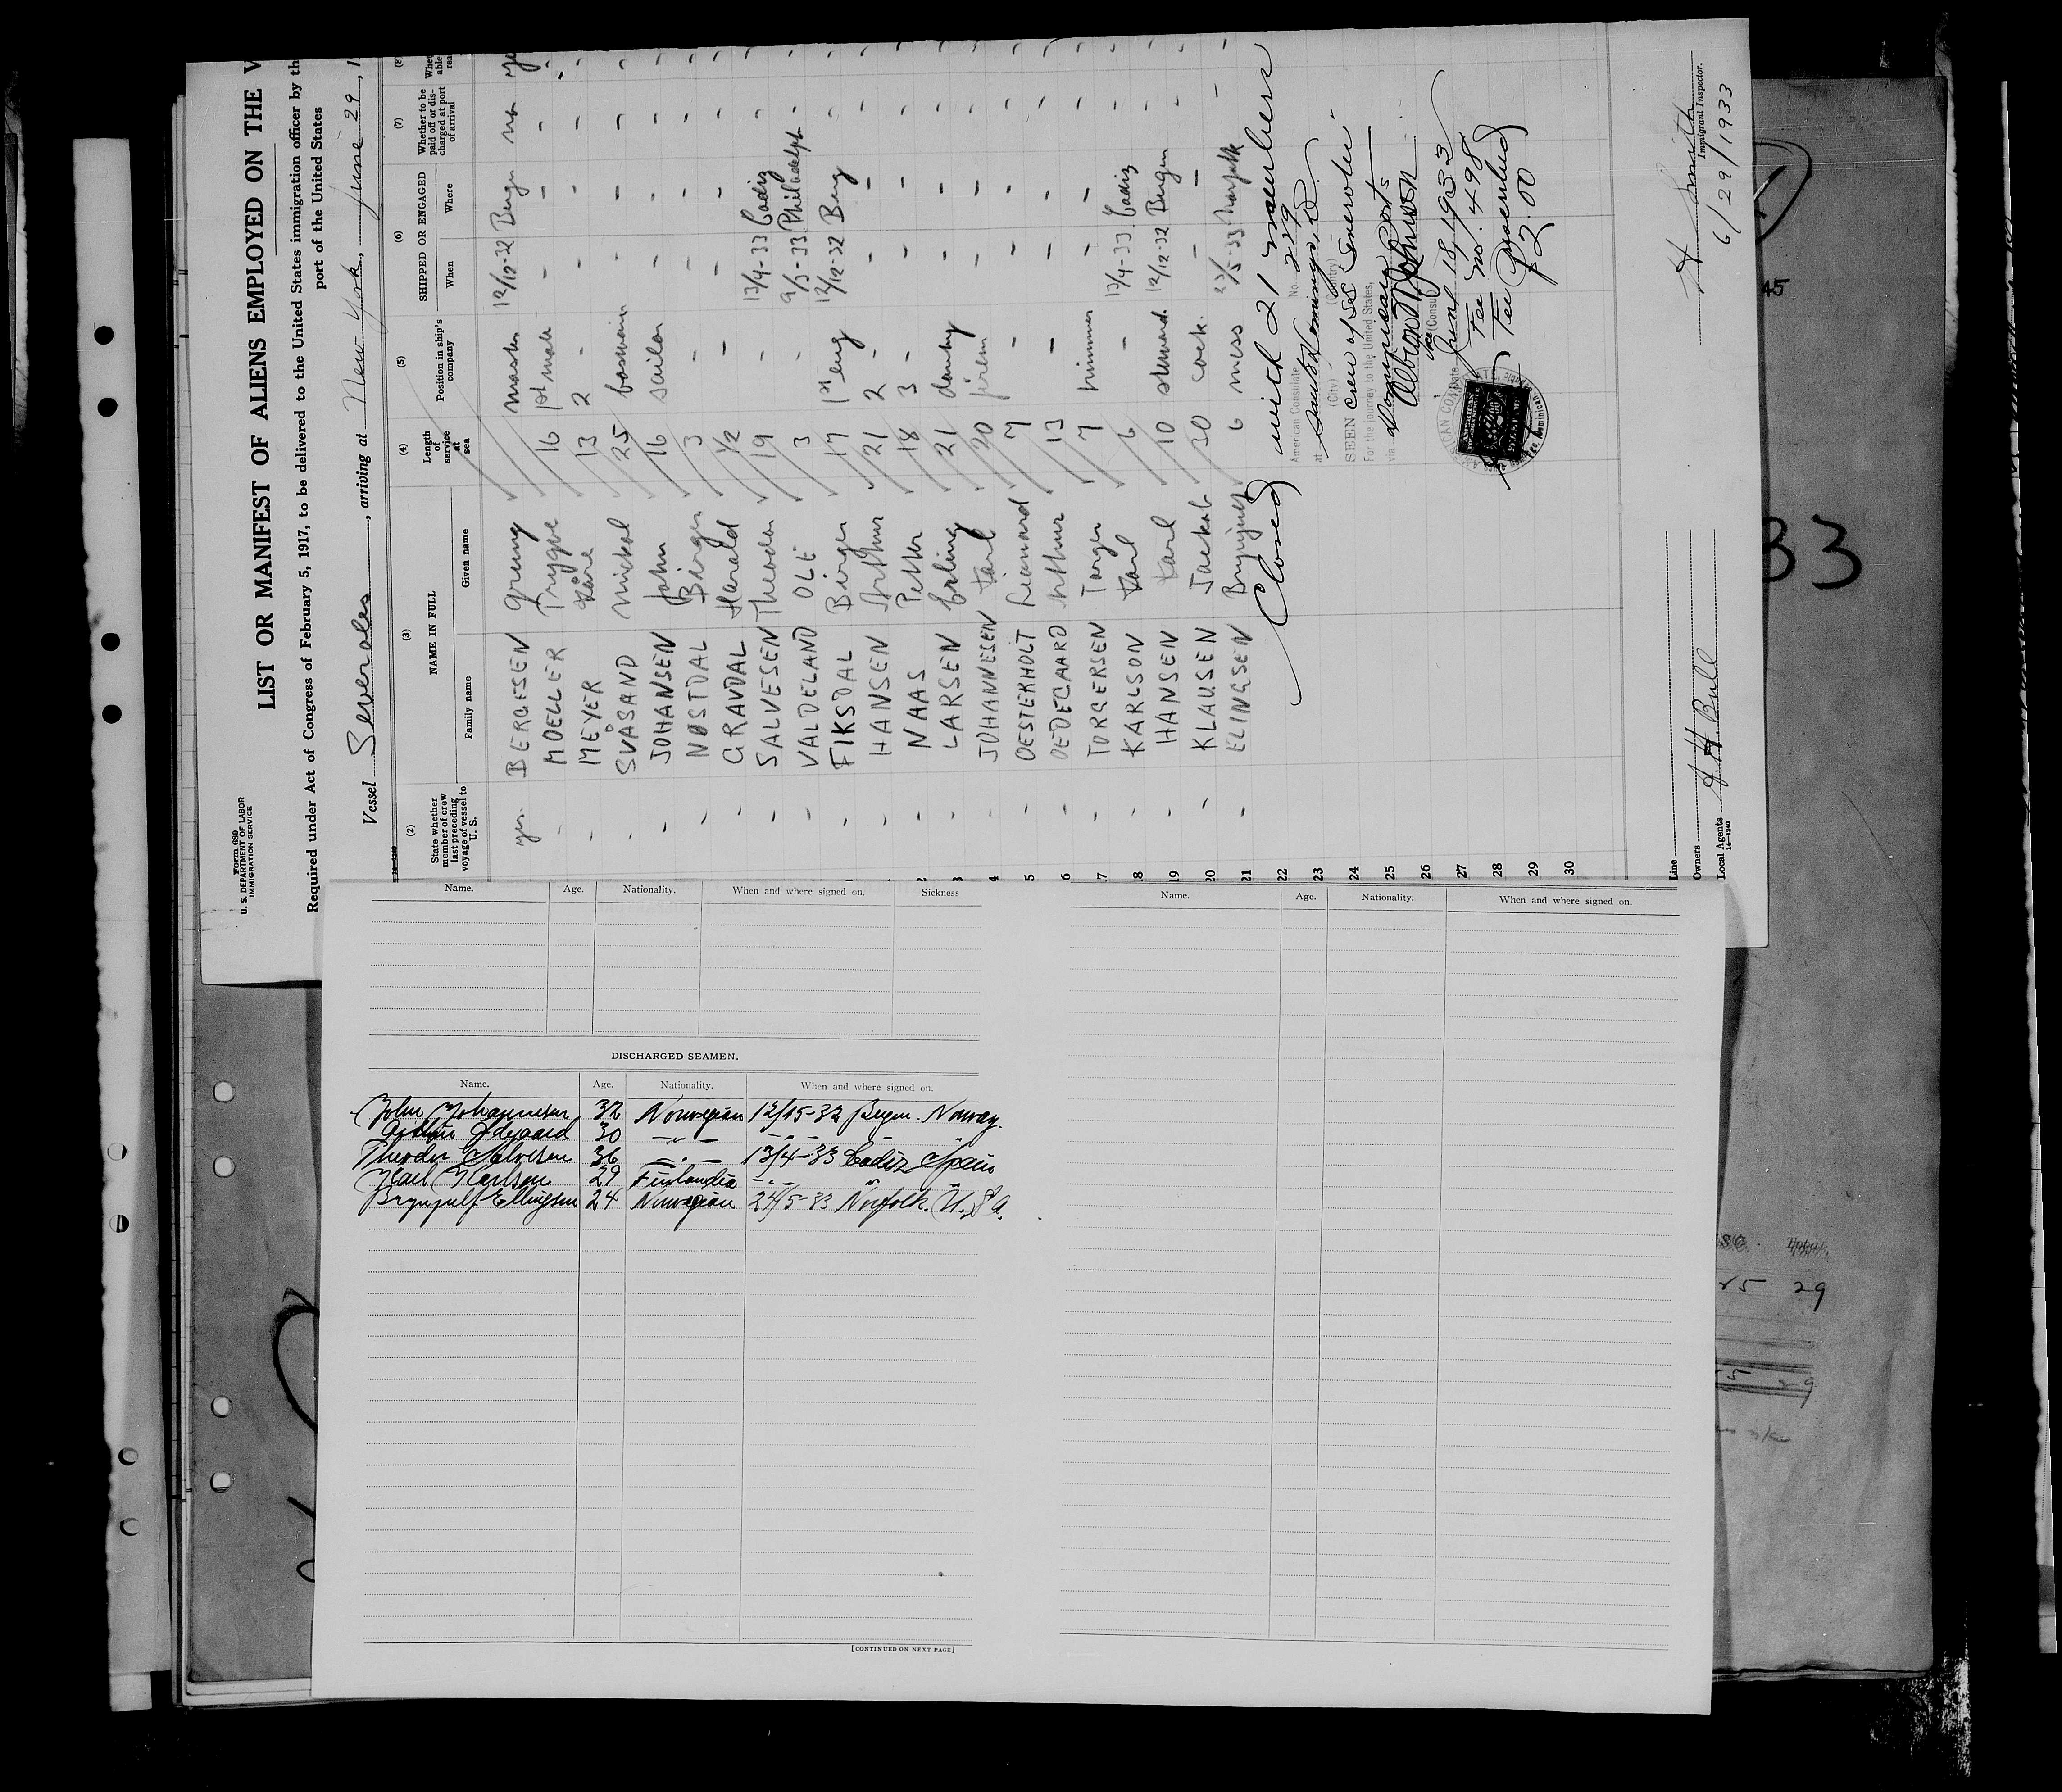 Form 680
U. S. DEPARTMENT OF LABOR
IMMIGRATION SERVICE
LIST OR MANIFEST OF ALIENS EMPLOYED ON THE V
Required under Act of Congress of February 5, 1917, to be delivered to the United States immigration officer by th
port of the United States
Vessel Severoles, arriving at New York, June 29, 1
(2) (3) (4) (5) (6) (7) (8)
State whether member of crew last preceding voyage of vessel to U. S.
NAME IN FULL
Family name Given name
Length of service at sea
Position in ship's company
SHIPPED OR ENGAGED
When Where
Whether to be paid off or discharged at port of arrival
yes BERGESEN master 12/12-32 Bergen no
MOELLER Trygve 16 1st mate
MEYER Kåre 13 2
SVÅSAND Mickal 25 boatswain
JOHANSEN John 16 sailor
NØSTDAL Birger 3
GRAVDAL Harald 1/2
SALVESEN Theodor 19 13/4-33 Cadiz
VALDELAND OLE 3 9/5-33 Philadelph
FIKSDAL Birger 17 1st eng 12/12-32 Berg
HANSEN Arthur 21 2
NAAS Petter 18 3
LARSEN Erling 21 donkey
JOHANNESEN Karl 20 firem
5 OESTERHOLT Leonard 7
6 OEDEGAARD Arthur 13
7 TORGERSEN Torger 7 trimmer
18 KARLSON Karl 6 13/4-33 Cadiz
19 HANSEN Karl 10 steward 12/12-32 Bergen
20 KLAUSEN Jackob 30 cook
21 ELINGSEN Brynjulf 6 mess 23/5-33 Norfolk
22 Closed with 21 members
23
24
25
26
27
28
29
30
American Consulate No. 229
at Santo Domingo, D.R.
(City) (Country)
SEEN crew of SS Severoles
For the journey to the United States,
via Dominican Ports
Vice (Consul)
Date June 18, 1933
Fee No. 498
Fee Prescribed
$2.00
Line
Owners
Local Agents A H Bull
14-1240
H Smith
Immigrant Inspector.
6/29/1933
33
45
Name. Age. Nationality. When and where signed on. Sickness
Name. Age. Nationality. When and where signed on.
DISCHARGED SEAMEN.
Name. Age. Nationality. When and where signed on.
John Johannesen 32 Norwegian 12/15-32 Bergen. Norway.
Arthur Ødegaard 30 — " — — " —
Theodor Salvesen 36 — " — 13/4-33 Cadiz Spain
Karl Karlson 29 Finlandia — " — "
Brynjulf Ellingsen 24 Norwegian 24/5-33 Norfolk. U.S.A.
[CONTINUED ON NEXT PAGE]
25 29